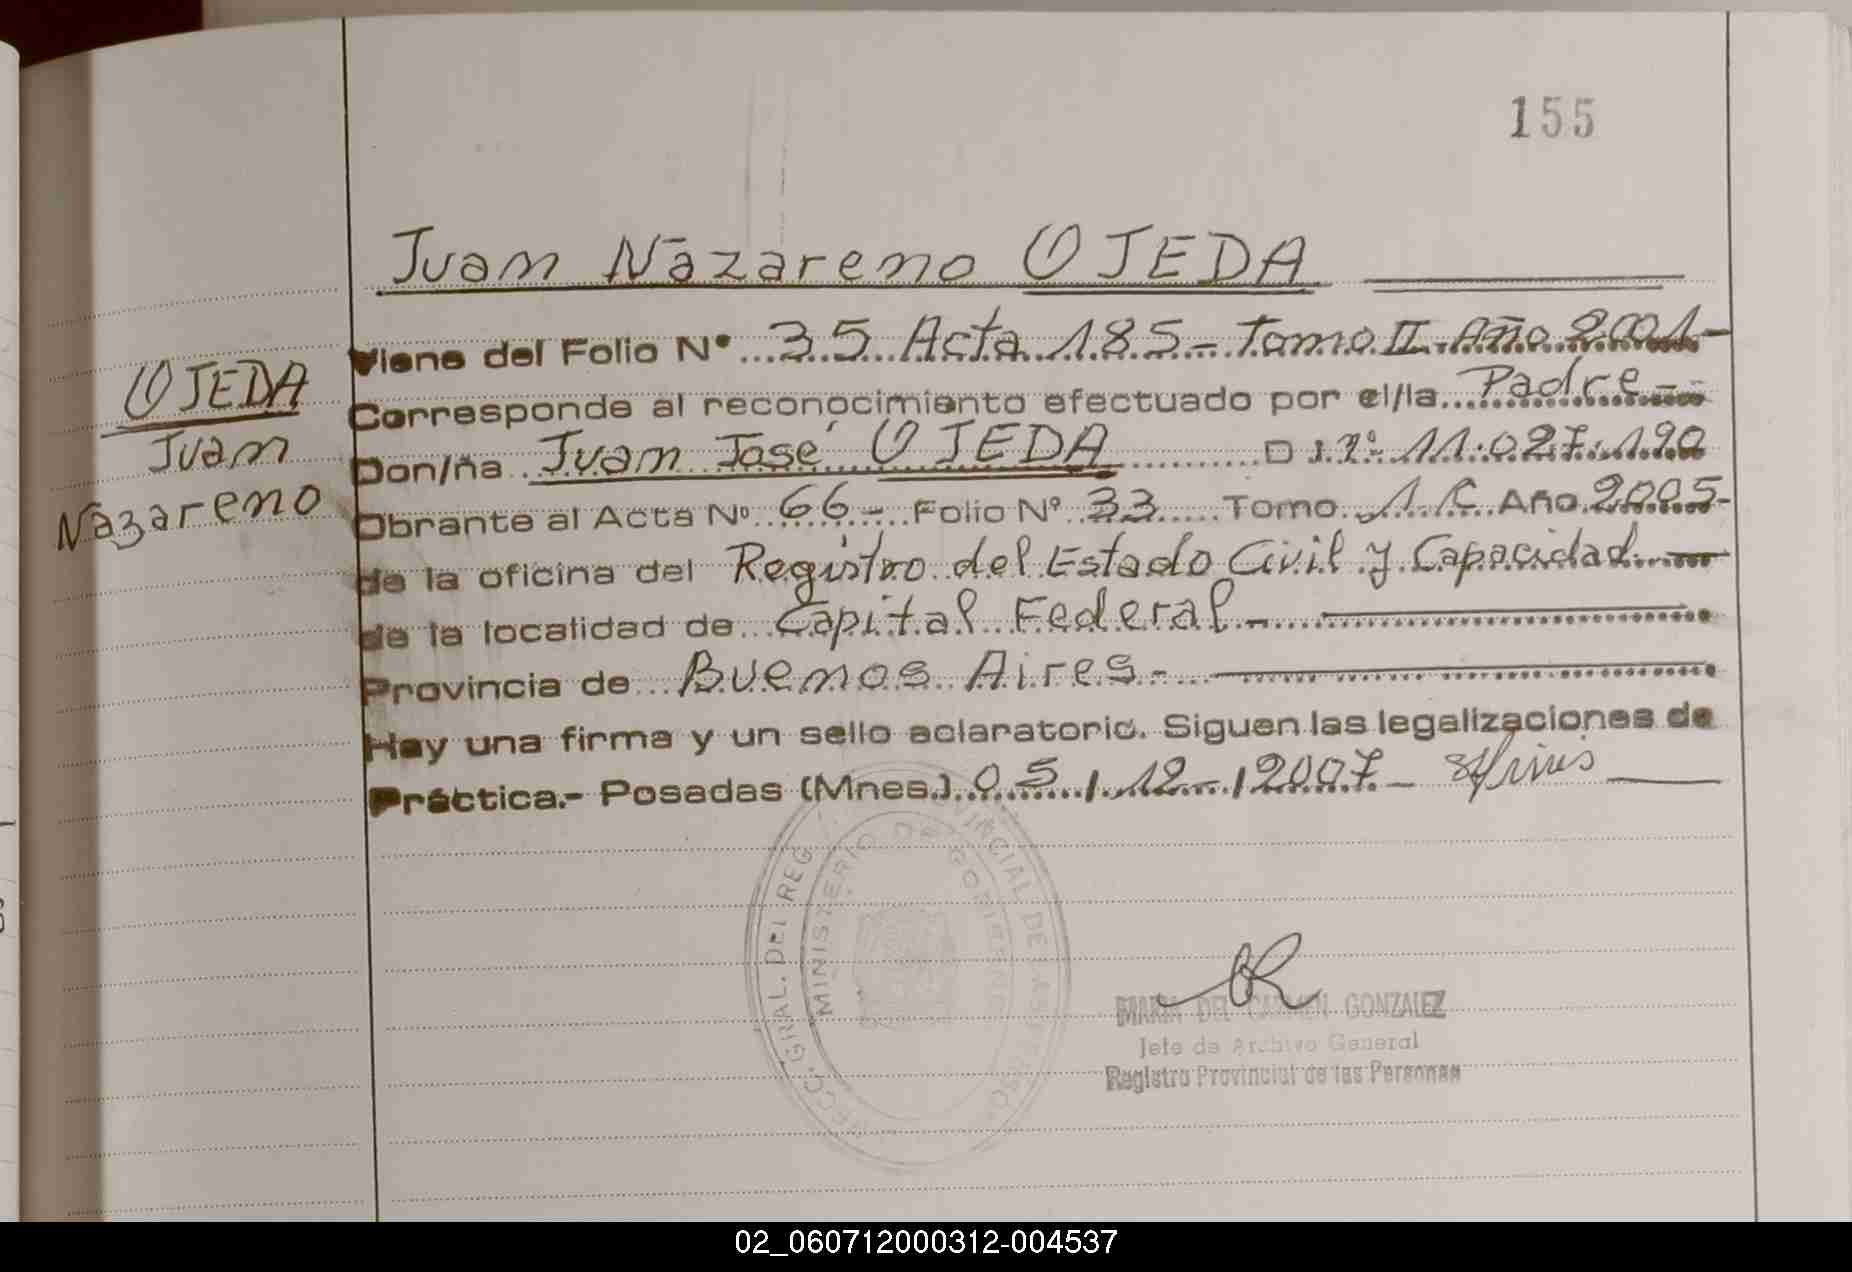 155
Juan Nazareno OJEDA
OJEDA
Juan
Nazareno
Viene del Folio N° 35 Acta 185- Tomo II Año 2001-
Corresponde al reconocimiento efectuado por el/la Padre-
Don/ña Juan José OJEDA D.I.Nº 11.027.190
Obrante al Acta Nº 66- Folio Nº 33 Tomo 1.C Año 2005-
de la oficina del Registro del Estado Civil y Capacidad
de la localidad de Capital Federal-
Provincia de Buenos Aires-
Hay una firma y un sello aclaratorio. Siguen las legalizaciones de
Práctica.- Posadas (Mnes.) 05/12-/2007-
GRAL. DEL REG
PROVINCIAL DE LAS PERSO
MINISTERIO DE GOBIERNO
MARIA DEL CARMEN GONZALEZ
Jefe de Archivo General
Registro Provincial de las Personas
02_060712000312-004537